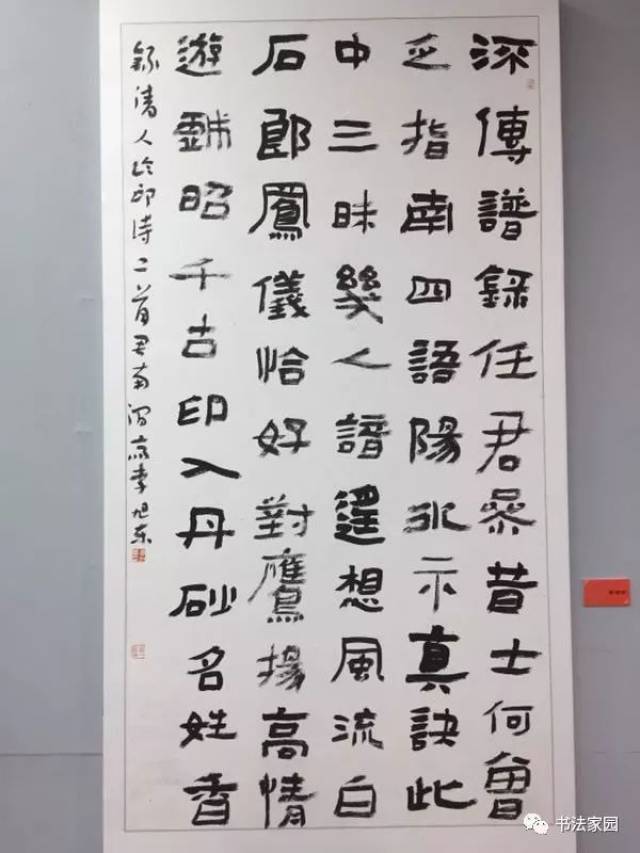 深傳譜録任君參昔士何曾
乏指南四語陽冰示真訣此
中三昧幾人諳遥想風流白
石郎鳳儀恰好對鷹揚高情
遊戲昭千古印入丹砂名姓香
錄清人论印诗二首 李旭东
书法家园